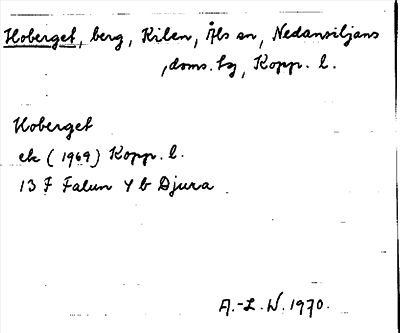 Hoberget, berg, Kilen, Åls sn, Nedansiljans
,doms. hg, Kopp. l.
Hoberget
ek (1969) Kopp. l.
13 F Falun 4 b Djura
A.-L. W. 1970.